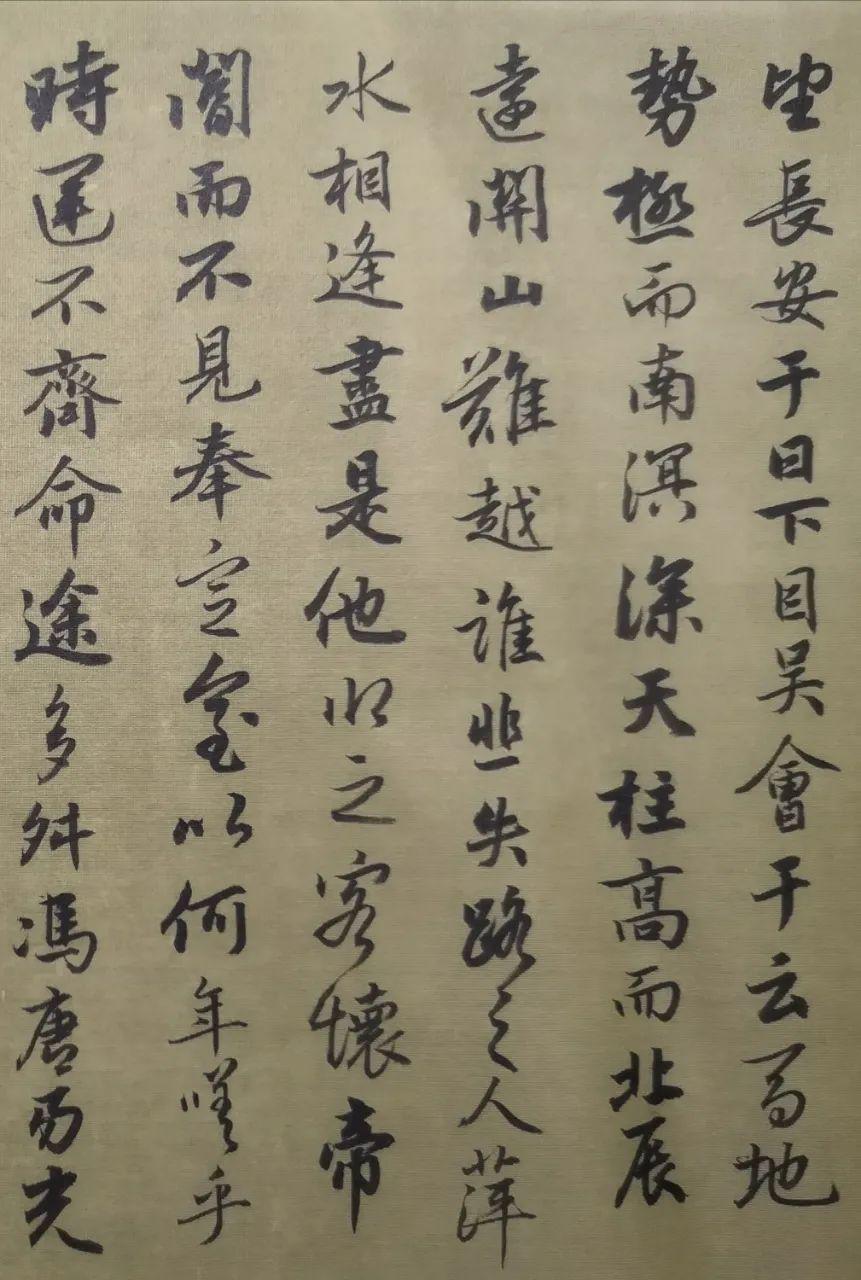 望長安于日下目吳會于云間地
勢極而南溟深天柱高而北辰
遠關山難越誰悲失路之人萍
水相逢盡是他鄉之客懷帝
閽而不見奉宣室以何年嗟乎
時運不齊命途多舛馮唐易老